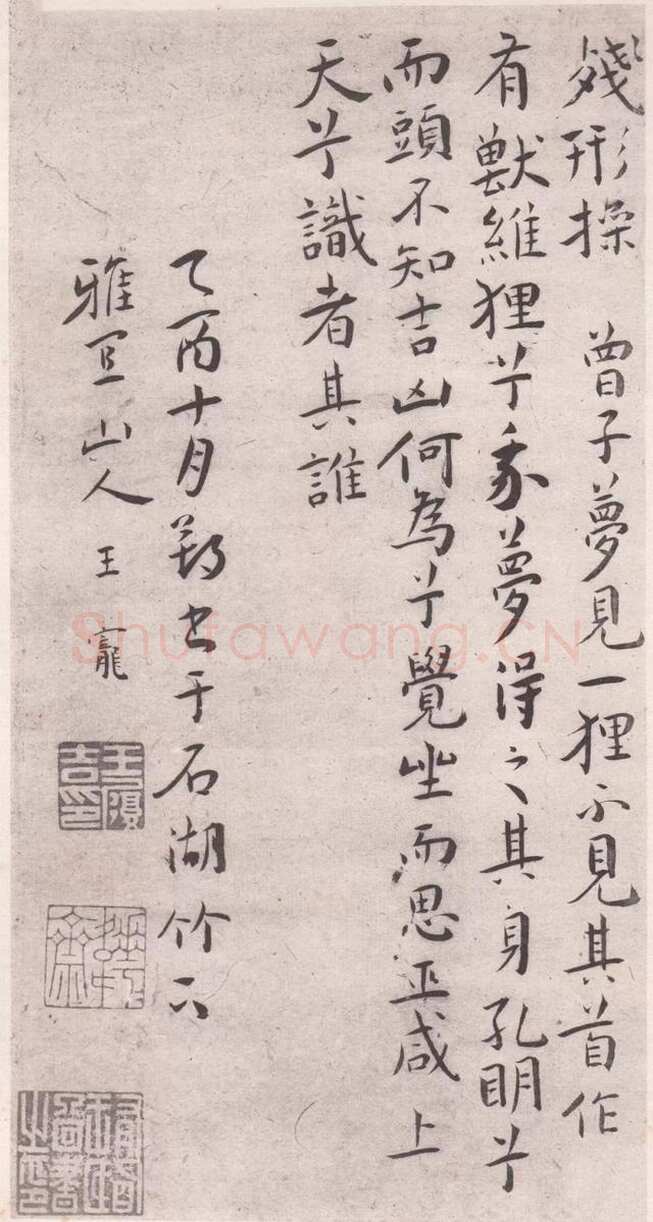 殘形操 曾子夢見一狸不見其首作
有獸維狸兮我夢得之其身孔明兮
而頭不知吉凶何為兮覺坐而思巫咸上
天兮識者其誰
乙酉十月朔書于石湖竹下
雅宜山人 王寵
王履吉印
Shufawang.CN